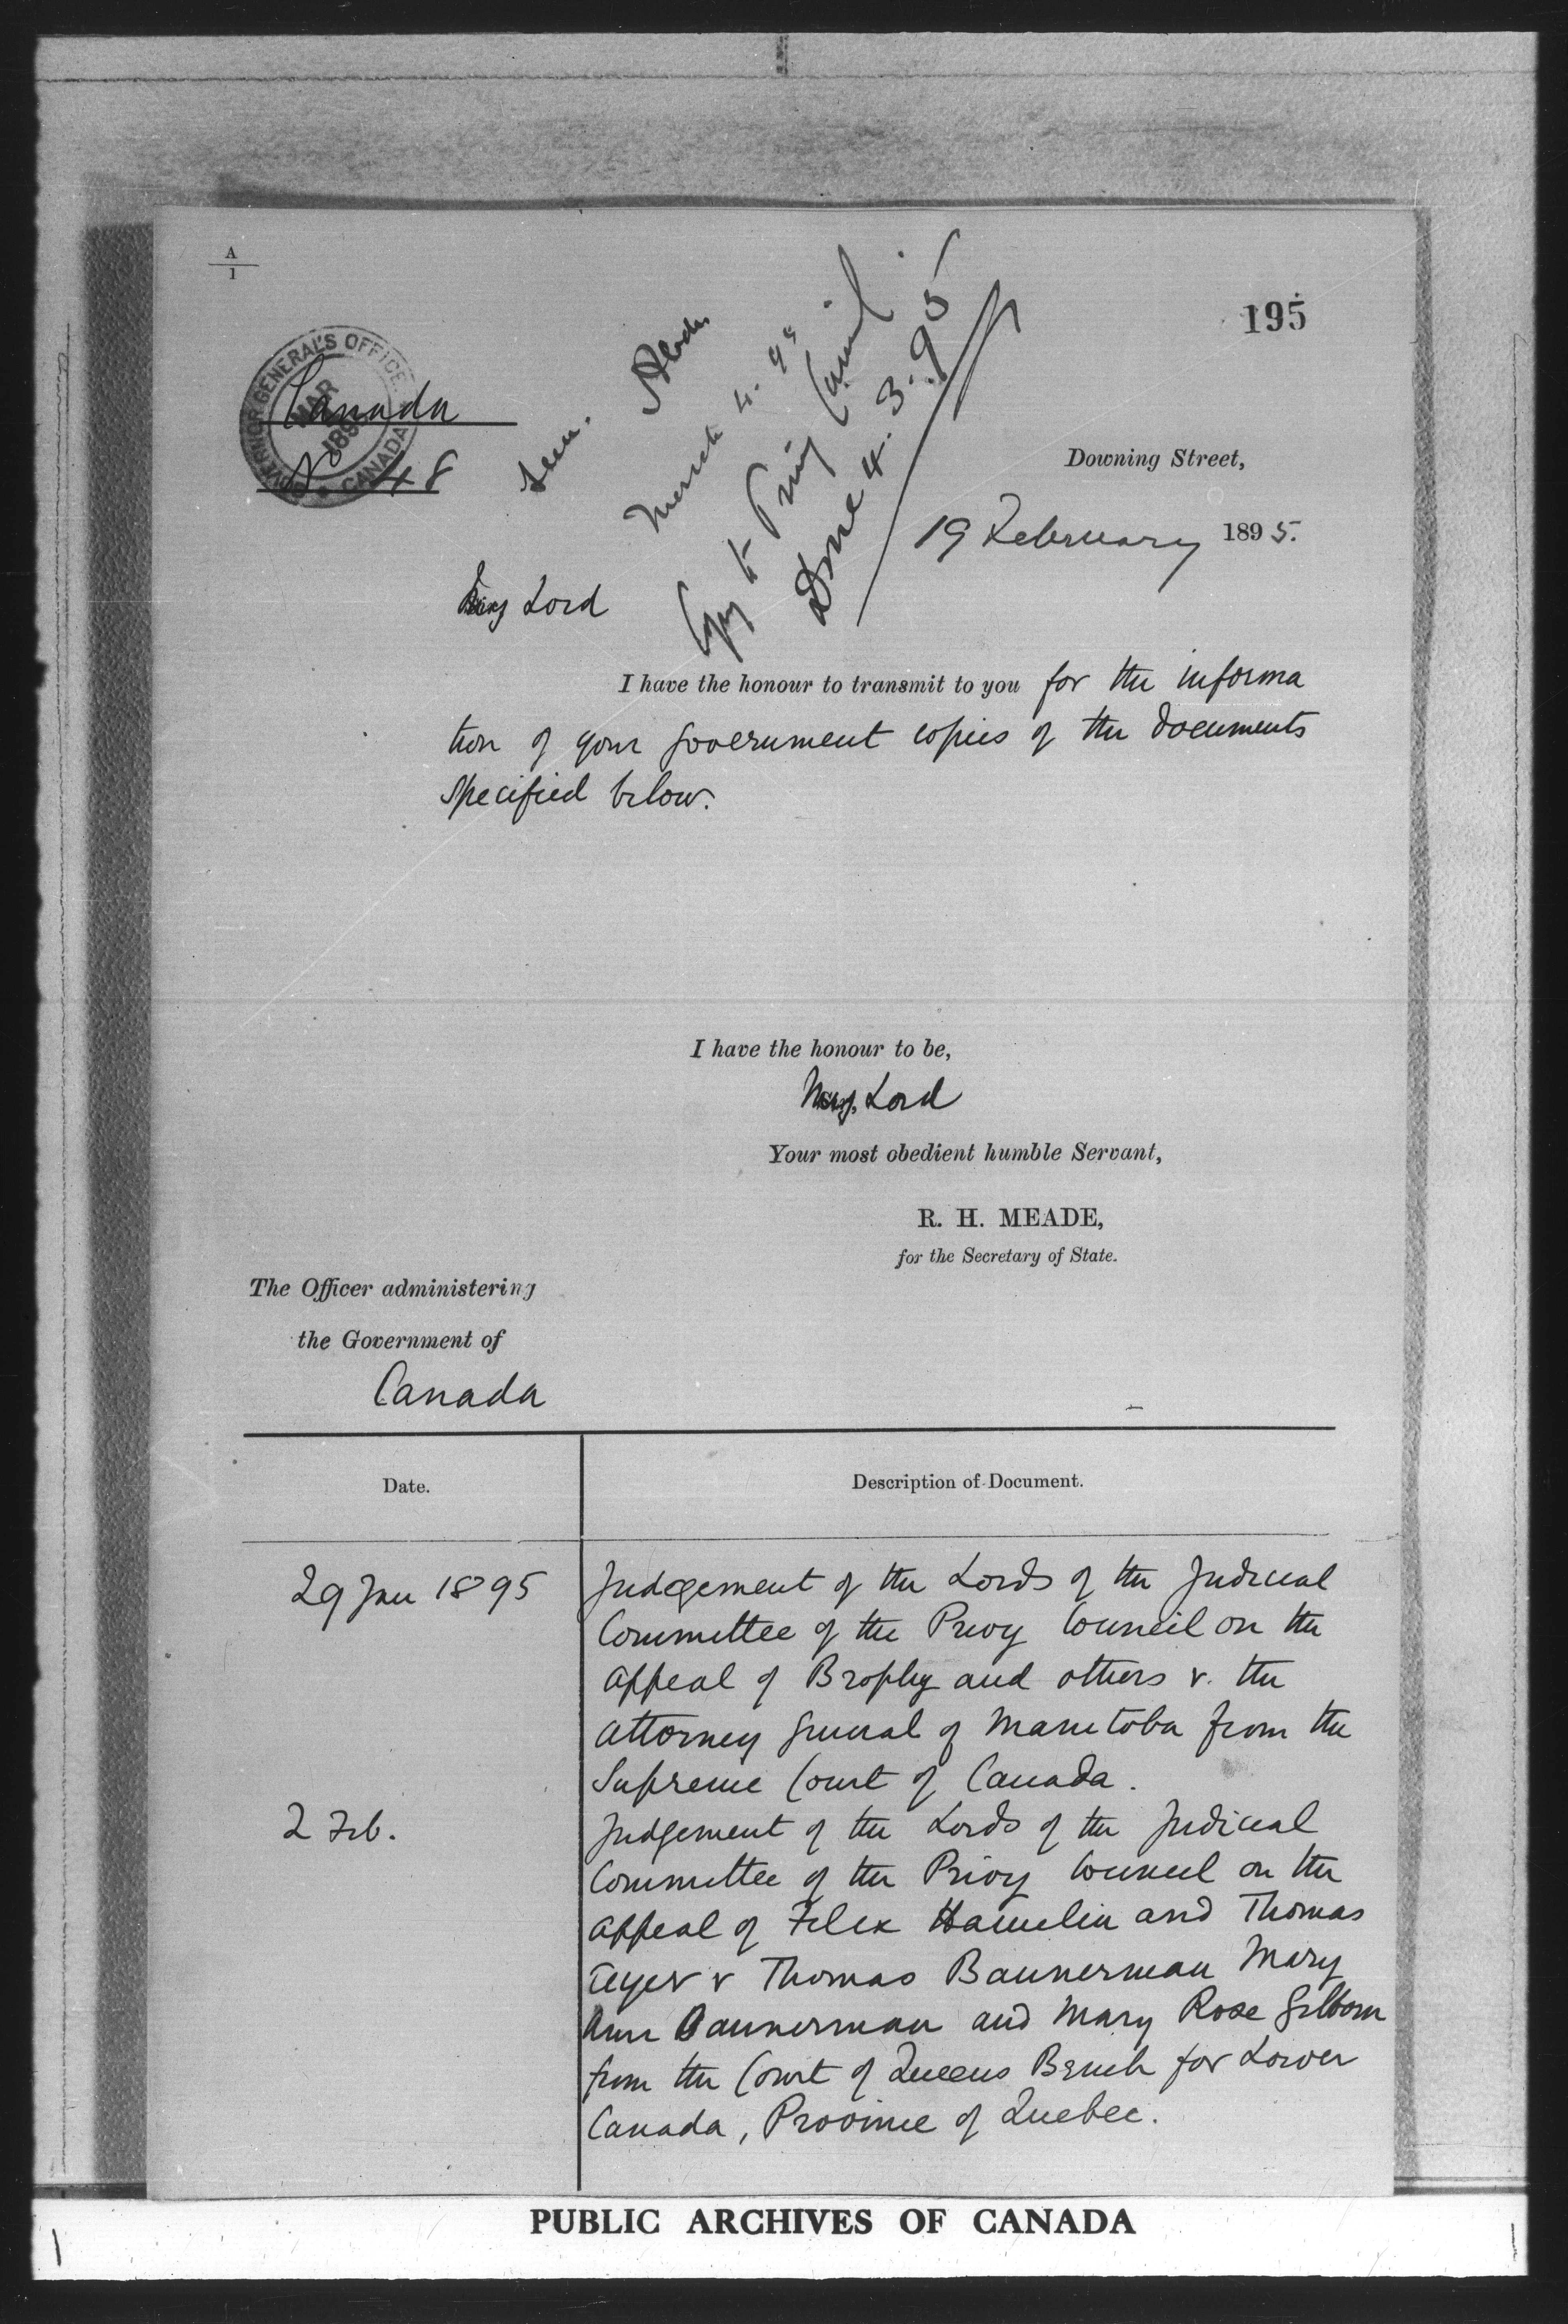 A
1
195
GOVERNOR GENERAL'S OFFICE
MAR
189
CANADA
Canada
48
Seen. Aberdn
March 4. 95
Copy to Privy Council
Done 4. 3. 95
Downing Street,
19 February 1895.
My Lord
I have the honour to transmit to you for the informa
tion of your Government copies of the documents
specified below.
I have the honour to be,
My Lord
Your most obedient humble Servant,
R. H. MEADE,
for the Secretary of State.
The Officer administering
the Government of
Canada
Date. Description of Document.
29 Jan 1895 Judgement of the Lords of the Judicial
Committee of the Privy Council on the
appeal of Brophy and others v. the
Attorney General of Manitoba from the
Supreme Court of Canada.
2 Feb. Judgement of the Lords of the Judicial
Committee of the Privy Council on the
appeal of Felix Hamelin and Thomas
Ayer v Thomas Bannerman Mary
Ann Bannerman and Mary Rose Gilborn
from the Court of Queens Bench for Lower
Canada, Province of Quebec.
PUBLIC ARCHIVES OF CANADA